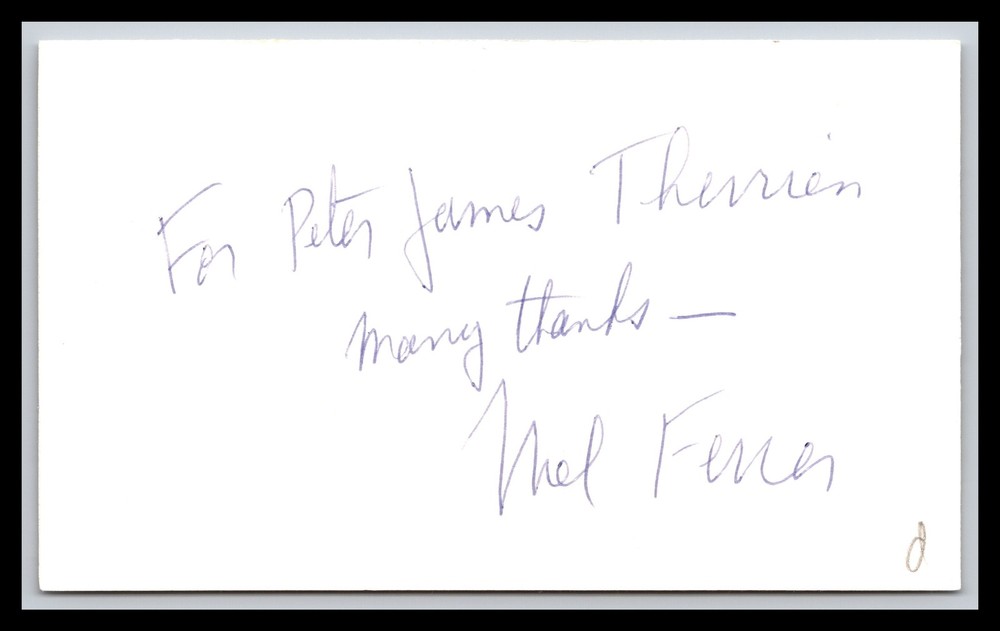 For Peter James Therrien
many thanks —
Mel Ferrer